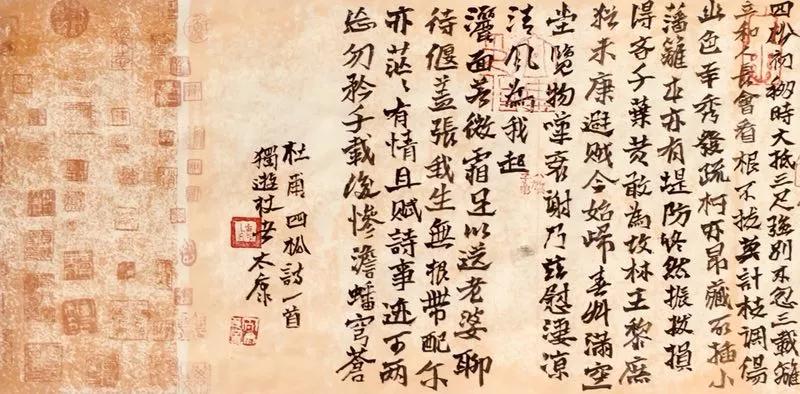 四松初移時大抵三尺強別来忽三載離
立如人長會看根不拔莫計枝凋傷
幽色幸秀發疏柯亦昂藏所插小
藩籬本亦有堤防終然振撥損
得吝千葉黄敢為故林主黎庶
猶未康避賊今始歸春草滿空
堂覽物嘆衰謝及兹慰淒涼
清風為我起
灑面若微霜足以送老姿聊
待偃盖張我生無根帶配尔
亦茫〻有情且賦詩事迹可兩
忘勿矜千載後惨澹蟠穹蒼
杜甫四松詩一首
獨遊杖書太康